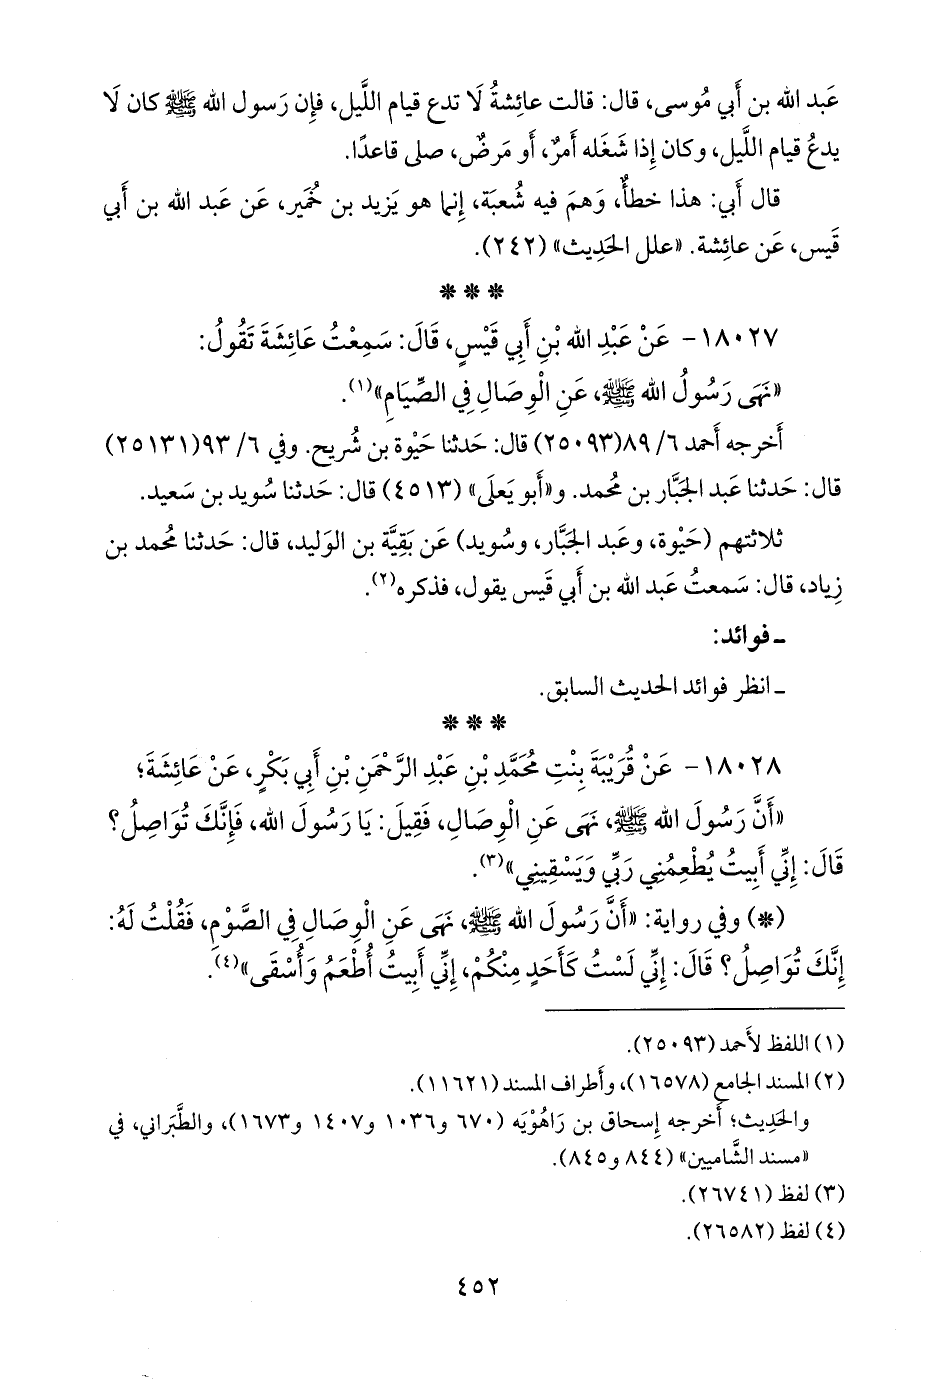 عَبد الله بن أَبي مُوسى، قال: قالت عائِشةُ لَا تدع قيام اللَّيل، فإِن رَسول الله ﷺ كان لَا
يدعُ قيام اللَّيل، وكان إِذا شَغَله أَمرٌ، أَو مَرضٌ، صلى قاعدًا.
قال أَبي: هذا خطأٌ، وَهمَ فيه شُعبَة، إِنما هو يَزيد بن خُمَير، عَن عبد الله بن أَبي
قَيس، عَن عائِشة. «علل الحَدِيث» (٢٤٢).
* * *
١٨٠٢٧- عَنْ عَبْدِ الله بْنِ أَبِي قَيْسٍ، قَالَ: سَمِعْتُ عَائِشَةَ تَقُولُ:
«نَهَى رَسُولُ الله ﷺ، عَنِ الْوِصَالِ فِي الصِّيَامِ»(١).
أَخرجه أَحمد ٦/ ٨٩(٢٥٠٩٣) قال: حَدثنا حَيْوة بن شُريح. وفي ٦/ ٩٣(٢٥١٣١)
قال: حَدثنا عَبد الجَبَّار بن مُحمد. و«أَبو يَعلَى» (٤٥١٣) قال: حَدثنا سُويد بن سَعيد.
ثلاثتهم (حَيْوة، وعَبد الجَبَّار، وسُويد) عَن بَقِيَّة بن الوَليد، قال: حَدثنا مُحمد بن
زِياد، قال: سَمعتُ عَبد الله بن أَبي قَيس يقول، فذكره(٢).
ـ فوائد:
ـ انظر فوائد الحديث السابق.
* * *
١٨٠٢٨- عَنْ قُرَيْبَةَ بِنْتِ مُحَمَّدِ بْنِ عَبْدِ الرَّحْمَنِ بْنِ أَبِي بَكْرٍ، عَنْ عَائِشَةَ؛
«أَنَّ رَسُولَ الله ﷺ، نَهَى عَنِ الْوِصَالِ، فَقِيلَ: يَا رَسُولَ الله، فَإِنَّكَ تُوَاصِلُ؟
قَالَ: إِنِّي أَبِيتُ يُطْعِمُنِي رَبِّي وَيَسْقِينِي»(٣).
(*) وفي رواية: «أَنَّ رَسُولَ الله ﷺ، نَهَى عَنِ الْوِصَالِ فِي الصَّوْمِ، فَقُلْتُ لَهُ:
إِنَّكَ تُوَاصِلُ؟ قَالَ: إِنِّي لَسْتُ كَأَحَدٍ مِنْكُمْ، إِنِّي أَبِيتُ أُطْعَمُ وَأُسْقَى»(٤).
(١) اللفظ لأَحمد (٢٥٠٩٣).
(٢) المسند الجامع (١٦٥٧٨)، وأَطراف المسند (١١٦٢١).
والحَدِيث؛ أَخرجه إِسحاق بن رَاهُوْيَه (٦٧٠ و١٠٣٦ و١٤٠٧ و١٦٧٣)، والطَّبَراني، في
«مسند الشَّاميين» (٨٤٤ و٨٤٥).
(٣) لفظ (٢٦٧٤١).
(٤) لفظ (٢٦٥٨٢).
٤٥٢